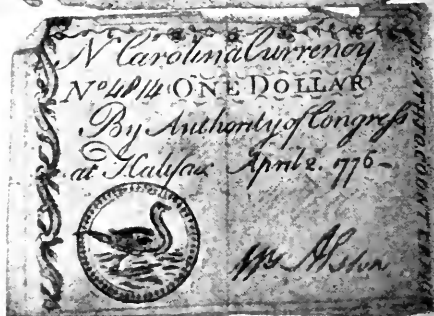 N Carolina Currency
No 4814 ONE DOLLAR
By Authority of Congress
at Halifax April 2. 1776
DEATH TO COUNTERFEIT